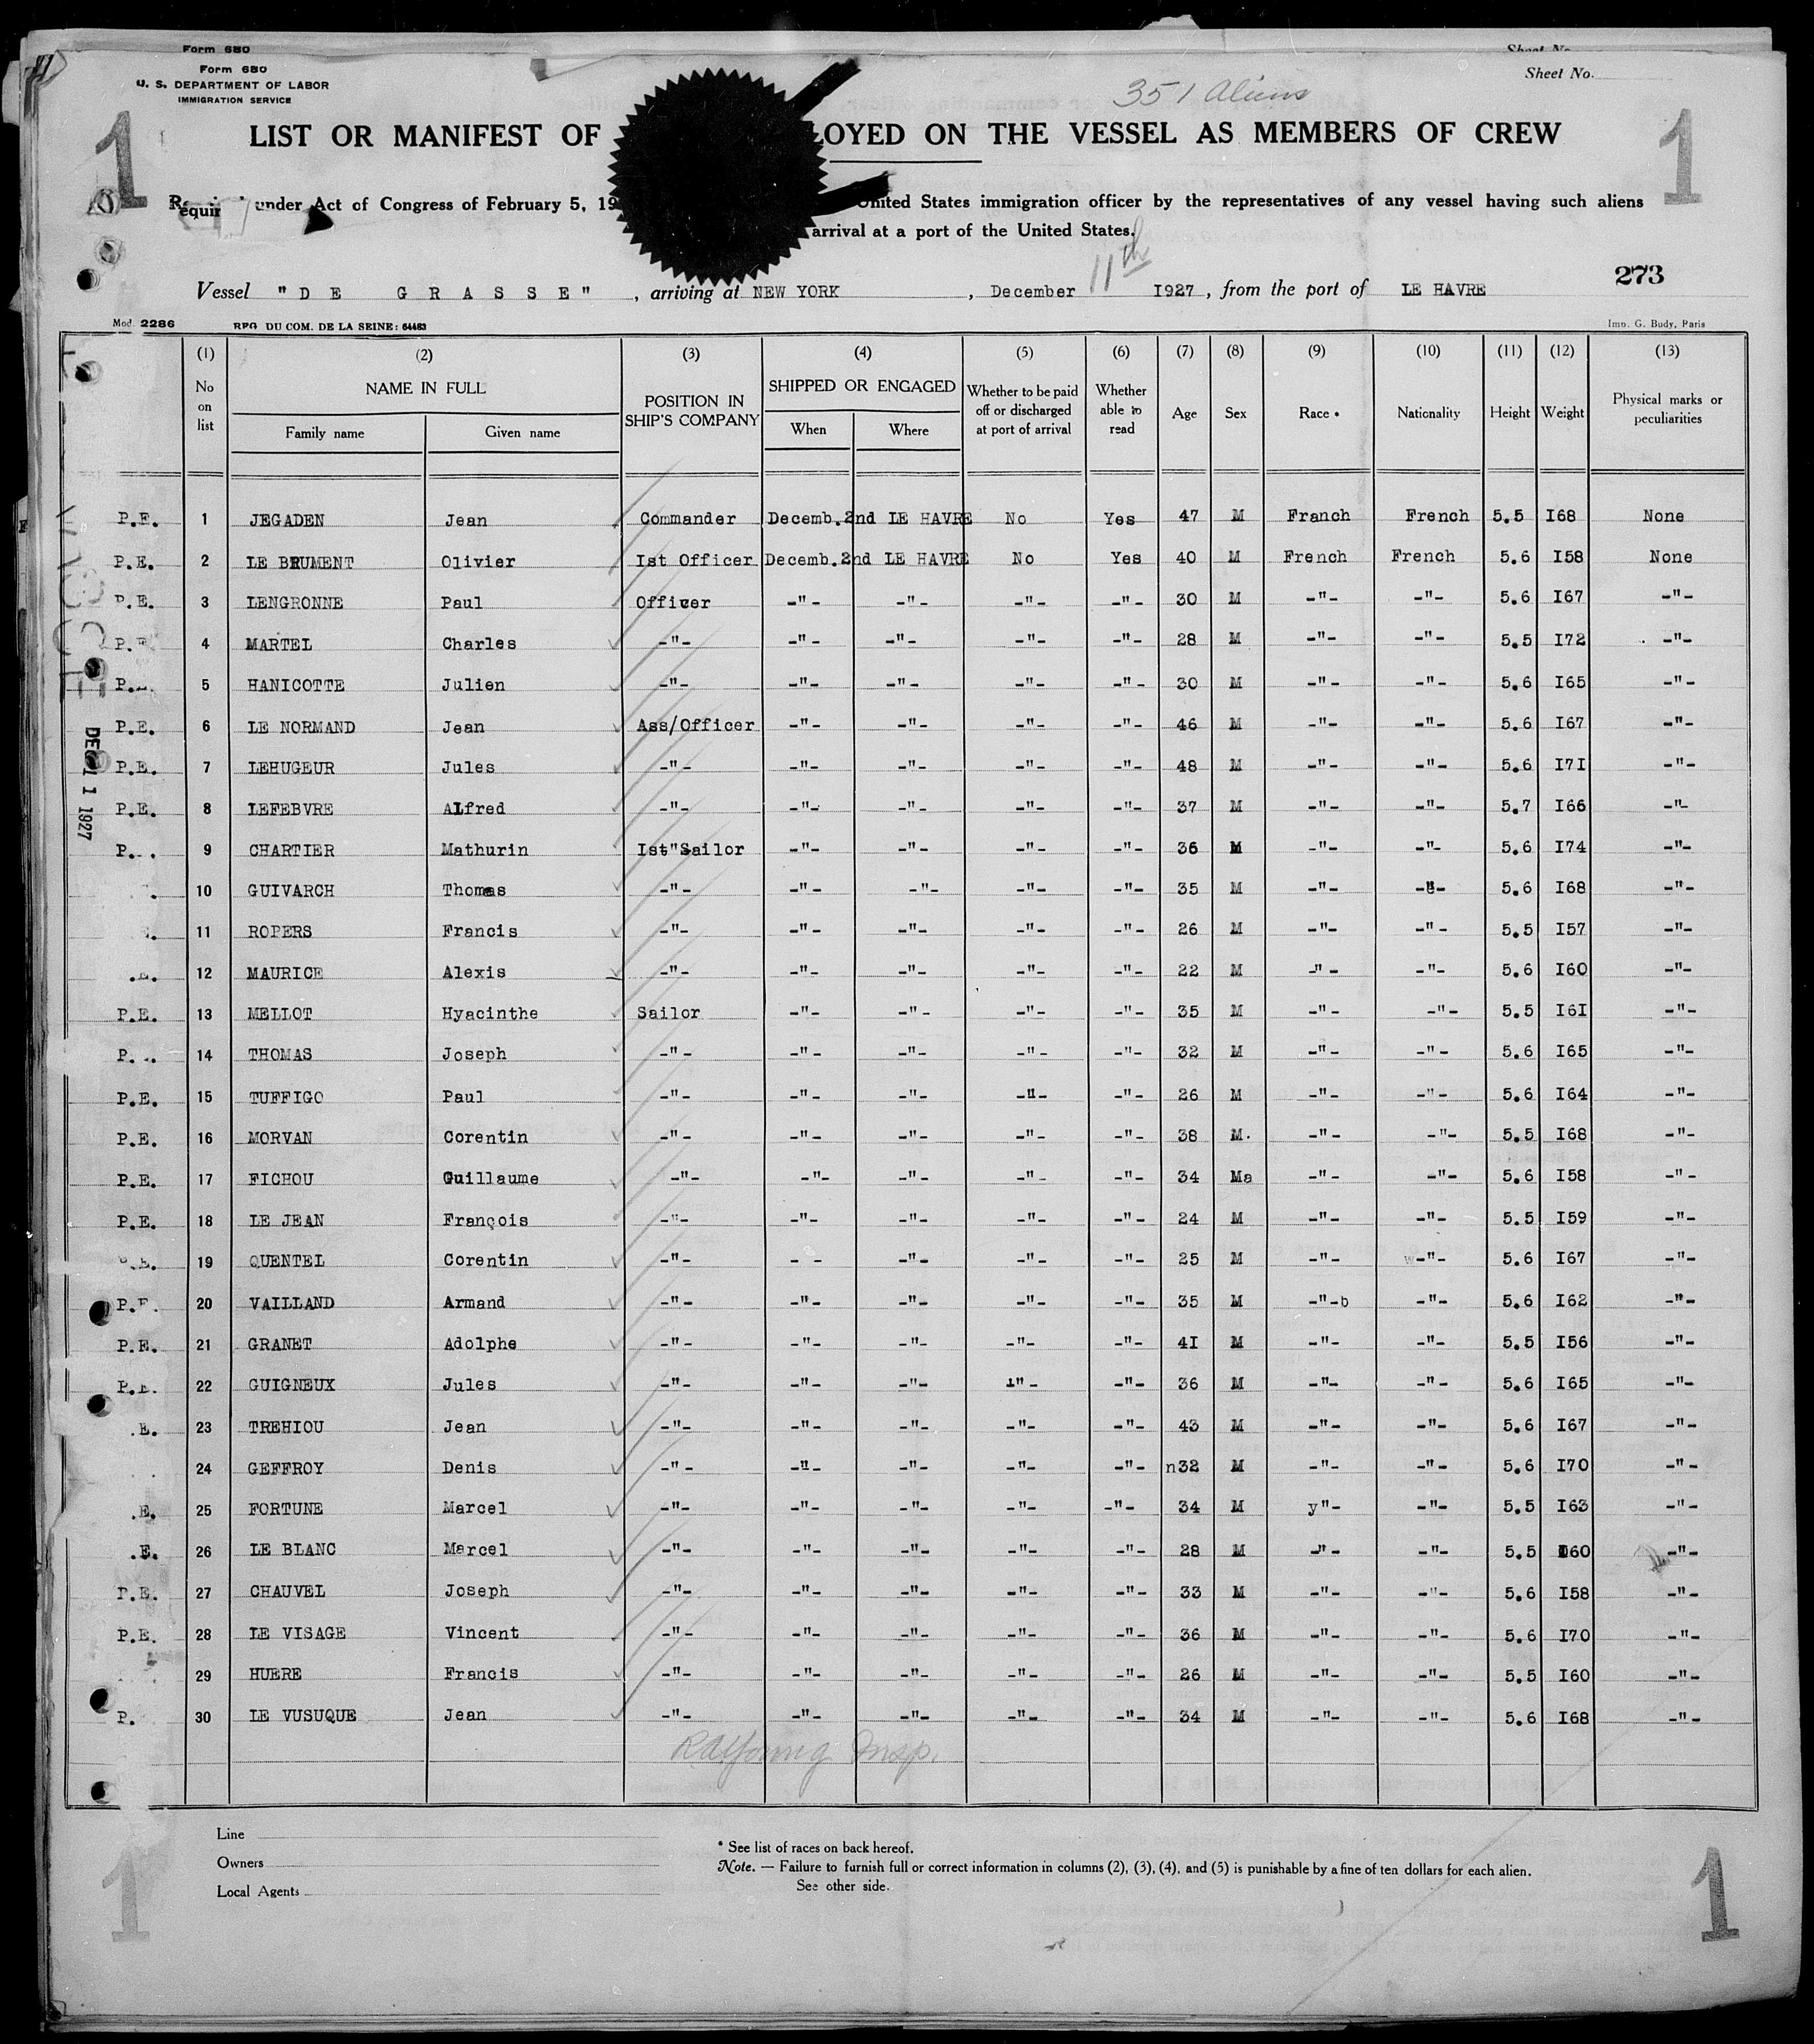 Form 680
Sheet No.
Form 680
Sheet No.
U. S. DEPARTMENT OF LABOR
IMMIGRATION SERVICE
351 Aliens
1 1
LIST OR MANIFEST OF LOYED ON THE VESSEL AS MEMBERS OF CREW
under Act of Congress of February 5, 19 United States immigration officer by the representatives of any vessel having such aliens
arrival at a port of the United States.
273
Vessel "DE GRASSE", arriving at NEW YORK, December 11th 1927, from the port of LE HAVRE
Mod. 2286 REG. DU COM. DE LA SEINE: 64483 Imp. G. Budy, Paris
(1) (2) (3) (4) (5) (6) (7) (8) (9) (10) (11) (12) (13)
No on list NAME IN FULL POSITION IN SHIP'S COMPANY SHIPPED OR ENGAGED Whether to be paid off or discharged at port of arrival Whether able to read Age Sex Race * Nationality Height Weight Physical marks or peculiarities
Family name Given name When Where
P.E. 1 JEGADEN Jean Commander Decemb.2nd LE HAVRE No Yes 47 M Franch French 5.5 I68 None
P.E. 2 LE BRUMENT Olivier Ist Officer Decemb.2nd LE HAVRE No Yes 40 M French French 5.6 I58 None
P.E. 3 LENGRONNE Paul Officer -"- -"- -"- -"- 30 M -"- -"- 5.6 I67 -"-
P.E. 4 MARTEL Charles -"- -"- -"- -"- -"- 28 M -"- -"- 5.5 I72 -"-
P. 5 HANICOTTE Julien -"- -"- -"- -"- -"- 30 M -"- -"- 5.6 I65 -"-
P.E. 6 LE NORMAND Jean Ass/Officer -"- -"- -"- -"- 46 M -"- -"- 5.6 I67 -"-
P.E. 7 LEHUGEUR Jules -"- -"- -"- -"- -"- 48 M -"- -"- 5.6 I7I -"-
P.E. 8 LEFEBVRE Alfred -"- -"- -"- -"- -"- 37 M -"- -"- 5.7 I66 -"-
P. 9 CHARTIER Mathurin Ist"Sailor -"- -"- -"- -"- 36 M -"- -"- 5.6 I74 -"-
10 GUIVARCH Thomas -"- -"- -"- -"- -"- 35 M -"- -"- 5.6 I68 -"-
11 ROPERS Francis -"- -"- -"- -"- -"- 26 M -"- -"- 5.5 I57 -"-
12 MAURICE Alexis -"- -"- -"- -"- -"- 22 M -"- -"- 5.6 I60 -"-
P.E. 13 MELLOT Hyacinthe Sailor -"- -"- -"- -"- 35 M -"- -"- 5.5 I6I -"-
P. 14 THOMAS Joseph -"- -"- -"- -"- -"- 32 M -"- -"- 5.6 I65 -"-
P.E. 15 TUFFIGO Paul -"- -"- -"- -"- -"- 26 M -"- -"- 5.6 I64 -"-
P.E. 16 MORVAN Corentin -"- -"- -"- -"- -"- 38 M. -"- -"- 5.5 I68 -"-
P.E. 17 FICHOU Guillaume -"- -"- -"- -"- -"- 34 Ma -"- -"- 5.6 I58 -"-
P.E. 18 LE JEAN François -"- -"- -"- -"- -"- 24 M -"- -"- 5.5 I59 -"-
E. 19 QUENTEL Corentin -"- - - -"- -"- -"- 25 M -"- w-"- 5.6 I67 -"-
P.E. 20 VAILLAND Armand -"- -"- -"- -"- -"- 35 M -"-b -"- 5.6 I62 -"-
P.E. 21 GRANET Adolphe -"- -"- -"- -"- -"- 4I M -"- -"- 5.5 I56 -"-
P.E. 22 GUIGNEUX Jules -"- -"- -"- -"- -"- 36 M -"- -"- 5.6 I65 -"-
E. 23 TREHIOU Jean -"- -"- -"- -"- -"- 43 M -"- -"- 5.6 I67 -"-
24 GEFFROY Denis -"- -"- -"- -"- -"- n32 M -"- -"- 5.6 I70 -"-
.E. 25 FORTUNE Marcel -"- -"- -"- -"- -"- 34 M y"- -"- 5.5 I63 -"-
.E. 26 LE BLANC Marcel -"- -"- -"- -"- -"- 28 M -"- -"- 5.5 I60 -"-
P.E. 27 CHAUVEL Joseph -"- -"- -"- -"- -"- 33 M -"- -"- 5.6 I58 -"-
P.E. 28 LE VISAGE Vincent -"- -"- -"- -"- -"- 36 M -"- -"- 5.6 I70 -"-
29 HUERE Francis -"- -"- -"- -"- -"- 26 M -"- -"- 5.5 I60 -"-
P. 30 LE VUSUQUE Jean -"- -"- -"- -"- -"- 34 M -"- -"- 5.6 I68 -"-
DEC 11 1927
Insp.
Line
Owners
Local Agents
* See list of races on back hereof.
Note. — Failure to furnish full or correct information in columns (2), (3), (4), and (5) is punishable by a fine of ten dollars for each alien.
See other side.
1 1